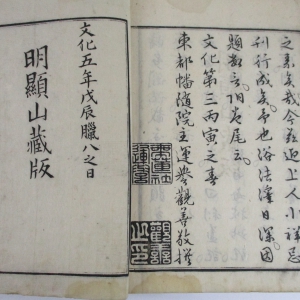 之素矣哉今玆迎上人小祥忌
刊行成矣予也浴法澤日深因
題數言附卷尾云
文化第三丙寅之春
東都幡隨院主運譽觀善敬撰
文化五年戊辰臘八之日
明顯山藏版